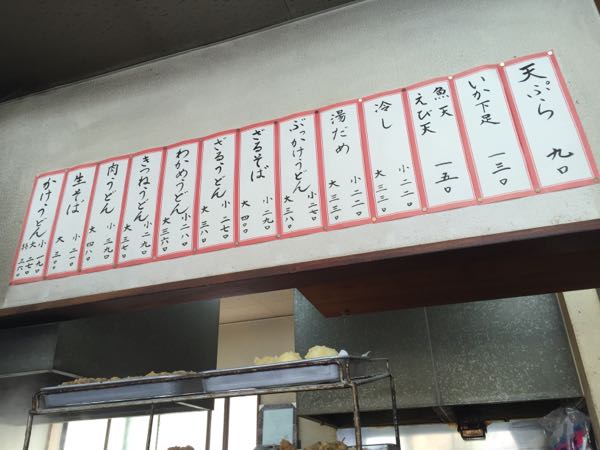 天ぷら 九〇
いか下足 一三〇
魚天
えび天 一五〇
冷し 小 二二〇
大 三三〇
湯だめ 小 二二〇
大 三三〇
ぶっかけうどん 小 二七〇
大 三八〇
ざるそば 小 二九〇
大 四〇〇
ざるうどん 小 二七〇
大 三八〇
わかめうどん 小 二八〇
大 三六〇
きつねうどん 小 二九〇
大 三七〇
肉うどん 小 三九〇
大 四八〇
生そば 小 二一〇
大 三一〇
かけうどん 小 一九〇
大 二七〇
特 三六〇